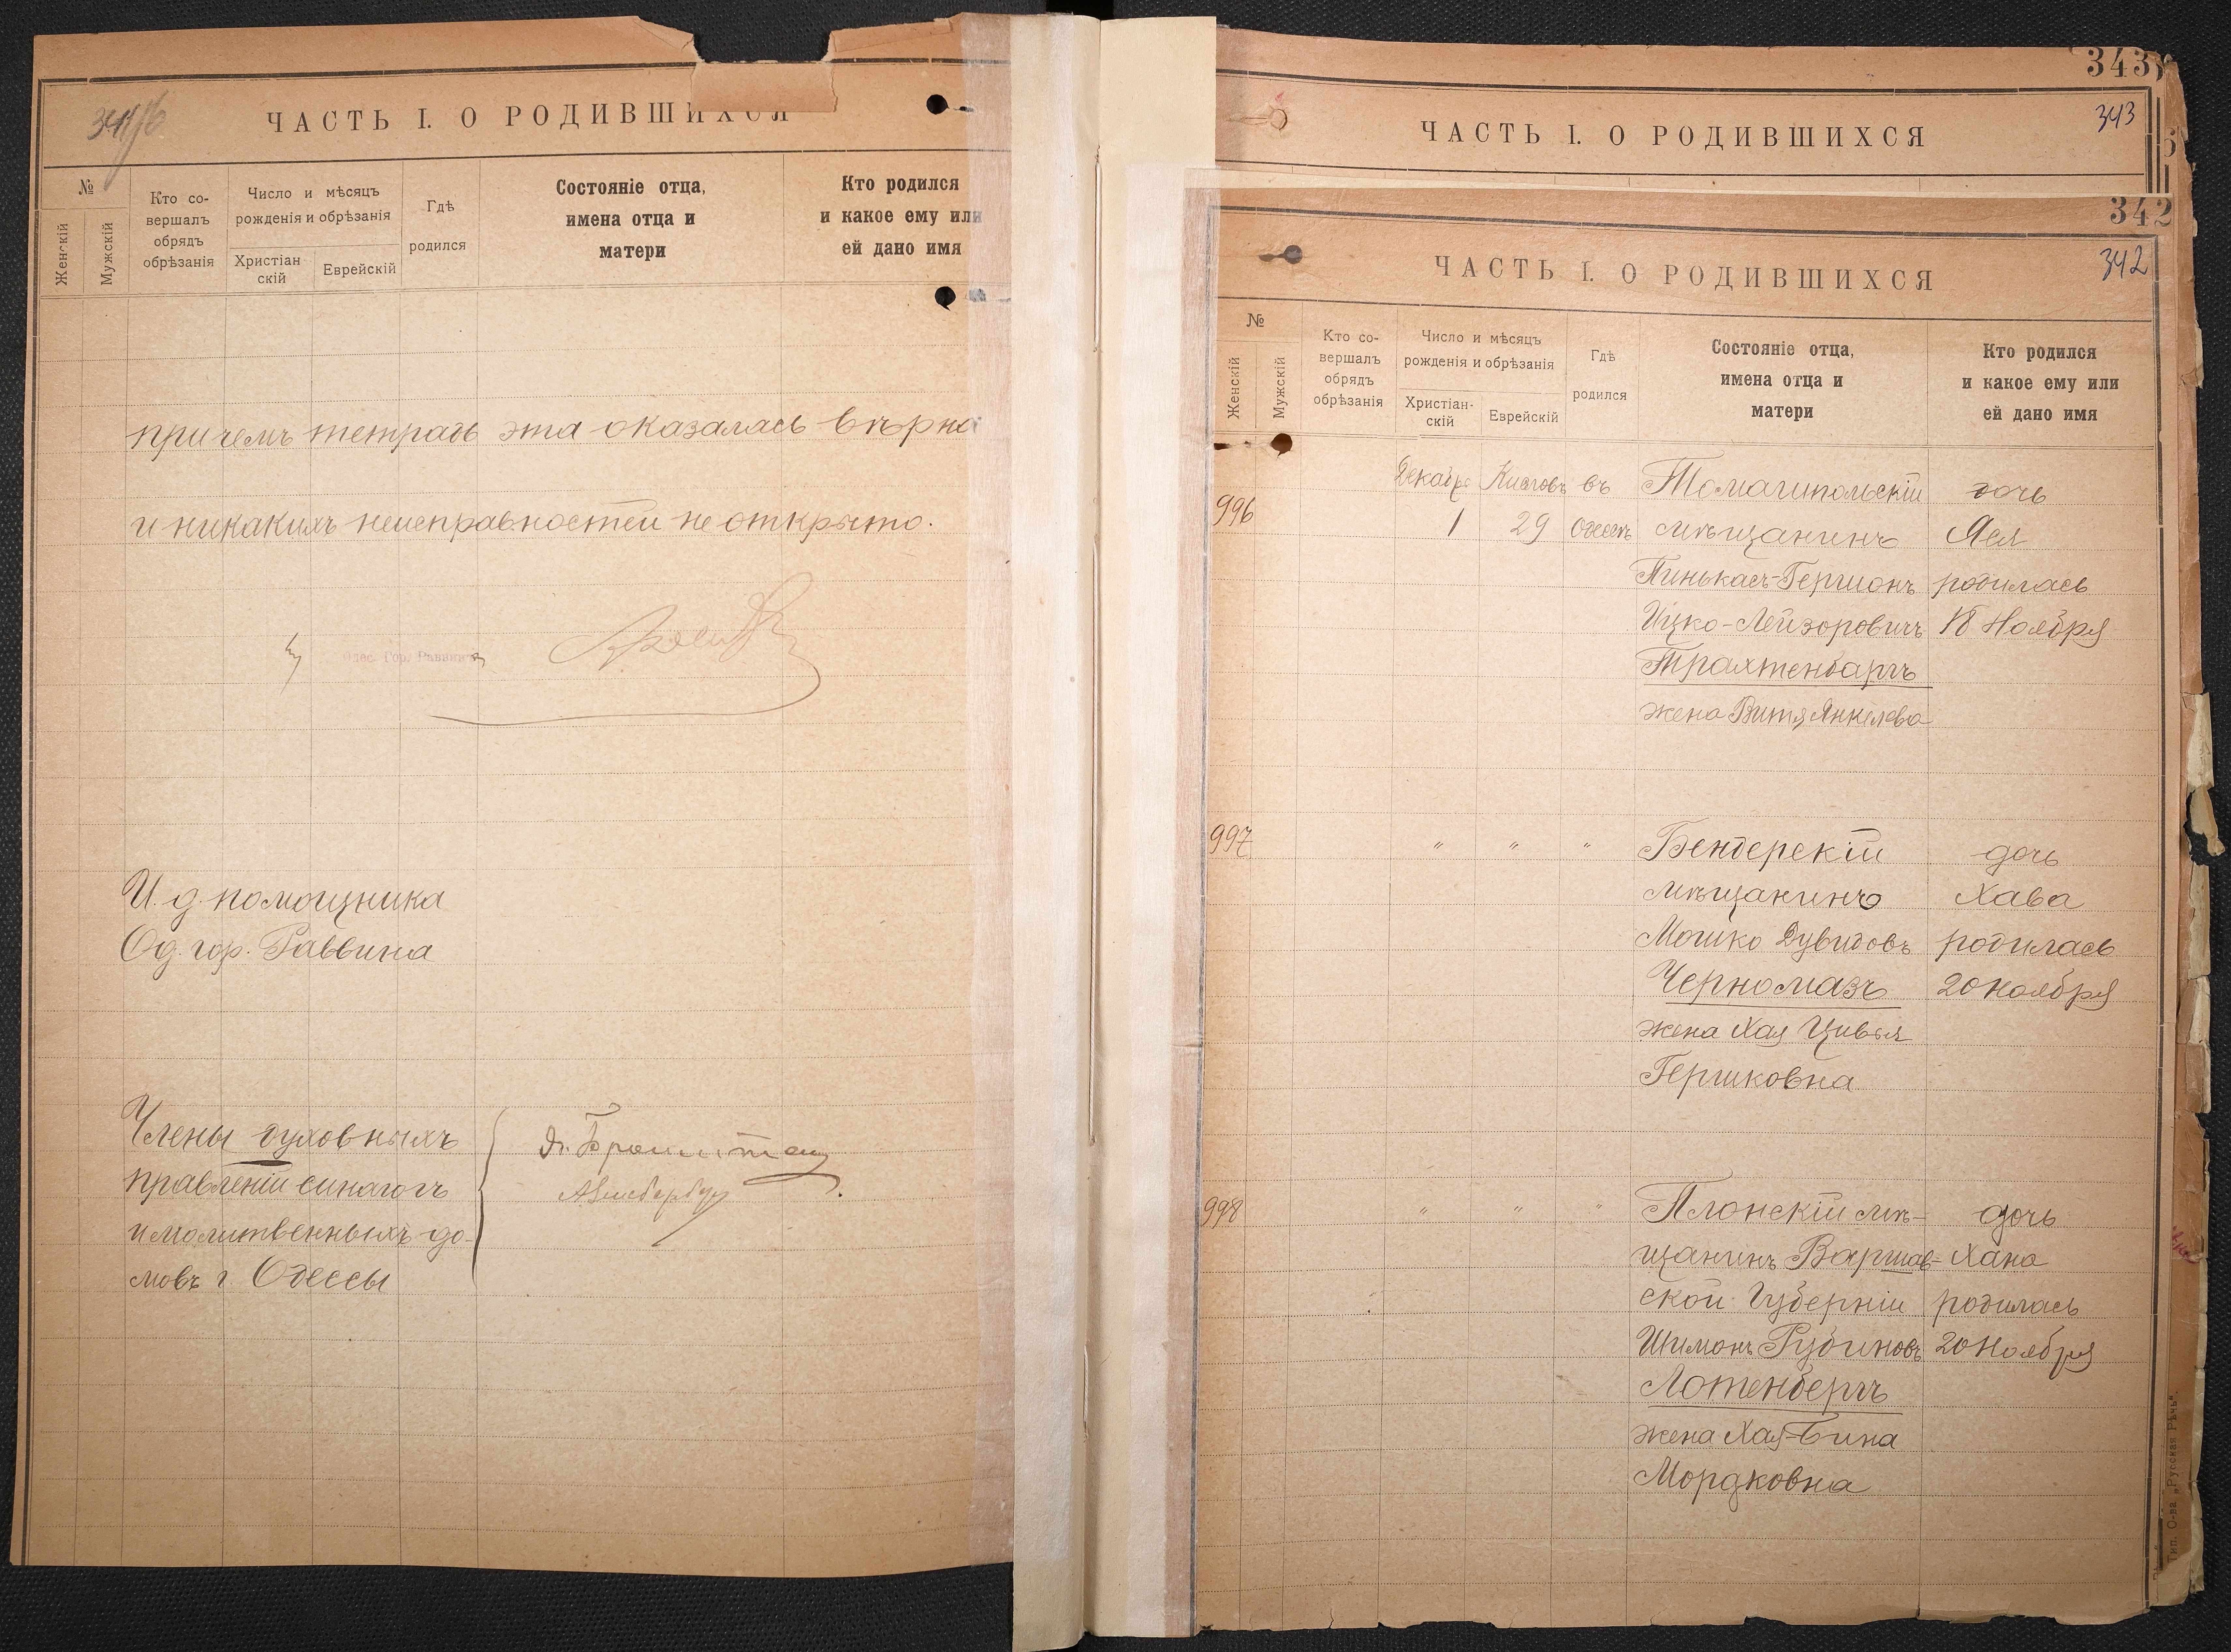 ЧАСТЬ I. О РОДИВШИХСЯ
№
Женскій
Мужскій
Кто со-
вершалъ
обрядъ
обрѣзанія
Число и мѣсяцъ
рожденія и обрѣзанія
Христіан
скій
Еврейскій
Гдѣ
родился
Состояніе отца,
имена отца и
матери
Кто родился
и какое ему или
ей дано имя
причемъ тетрадь эта оказалась вѣрна
и никакихъ неисправностей не открыто.
Одес. Гор. Раввинъ
И. д. помощника
Од. гор. Раввина
Члены духовныхъ
правленій синагогъ
и молитвенныхъ до-
мовъ г. Одессы
343
343
ЧАСТЬ I. О РОДИВШИХСЯ
342
342
ЧАСТЬ I. О РОДИВШИХСЯ
№
Женскій
Мужскій
Кто со-
вершалъ
обрядъ
обрѣзанія
Число и мѣсяцъ
рожденія и обрѣзанія
Христіан-
скій
Еврейскій
Гдѣ
родился
Состояніе отца,
имена отца и
матери
Кто родился
и какое ему или
ей дано имя
996
Декабрь Кислевъ въ Томашпольскій дочь
1 29 Одессѣ мѣщанинъ Ася
Пинькасъ-Гершонъ родилась
Ицко-Лейзоровичъ 18 Ноября
Трахтенбаргъ
жена Витя Янкелева
997 " " " Бендерскій дочь
мѣщанинъ Хава
Мошко Дувидовъ родилась
Черномазъ 20 Ноября
жена Хая Цивья
Гершковна
998 " " " Плонскій мѣ- дочь
щанинъ Варшав- Хана
ской Губерніи родилась
Шимонъ Рубиновъ 20 Ноября
Лотенбергъ
жена Хая-Бина
Мордковна
Тип. О-ва „Русская Рѣчь".